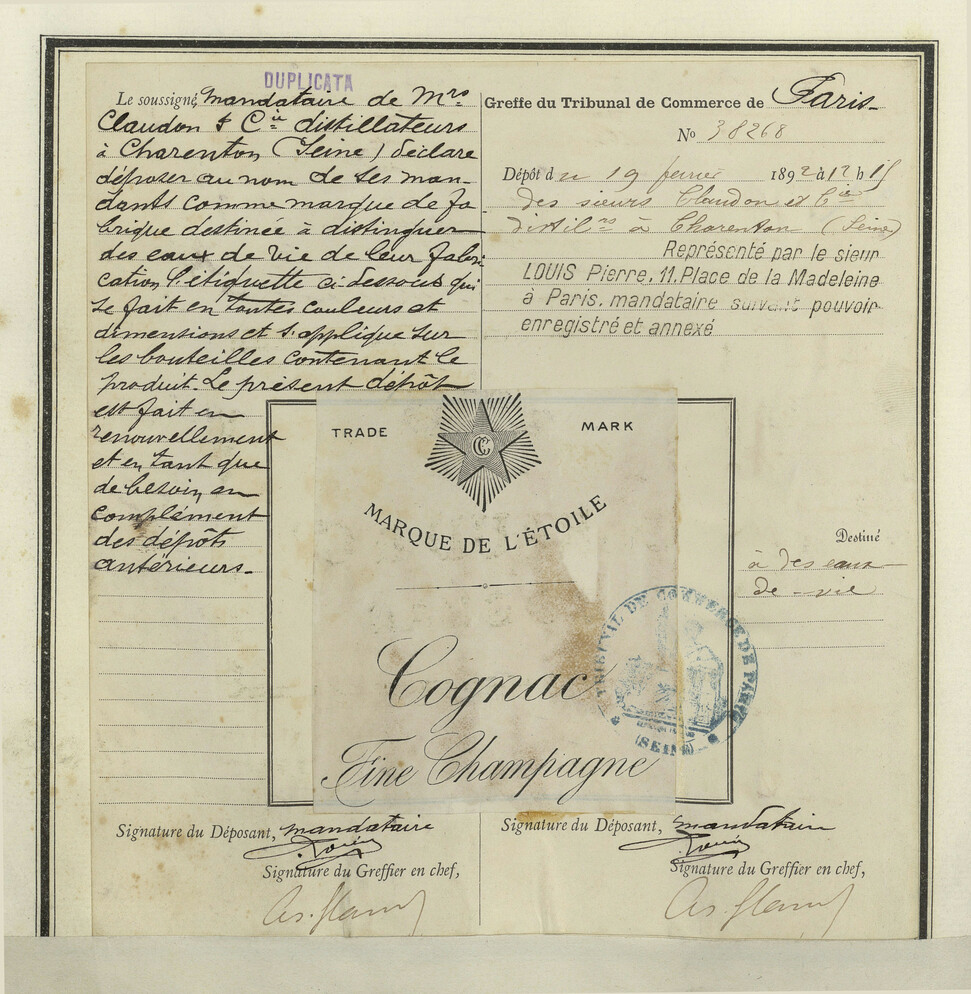 DUPLICATA
Le soussigné, mandataire de Mrs
Claudon & Cie distillateurs
à Charenton (Seine) déclare
déposer au nom de ses man-
dants comme marque de fa
brique destinée à distinguer
des eaux de vie de leur fabri
cation l'étiquette ci-dessous qui
se fait en toutes couleurs et
dimensions et s'applique sur
les bouteilles contenant le
produit. Le présent dépôt
est fait en
renouvellement
et en tant que
de besoin en
complément
des dépôts
antérieurs.
Greffe du Tribunal de Commerce de Paris
No 38268
Dépôt du 19 février 1892 à 12 h 15
des sieurs Claudon et Cie
distilrs à Charenton (Seine)
Représenté par le sieur
LOUIS Pierre, 11, Place de la Madeleine
à Paris, mandataire suivant pouvoir
enregistré et annexé
TRADE MARK
CC
MARQUE DE L'ÉTOILE
Cognac
Fine Champagne
Destiné
à des eaux
de-vie
TRIBUNAL DE COMMERCE DE PARIS
(SEINE)
Signature du Déposant, mandataire
Louis
Signature du Greffier en chef,
Signature du Déposant, mandataire
Louis
Signature du Greffier en chef,